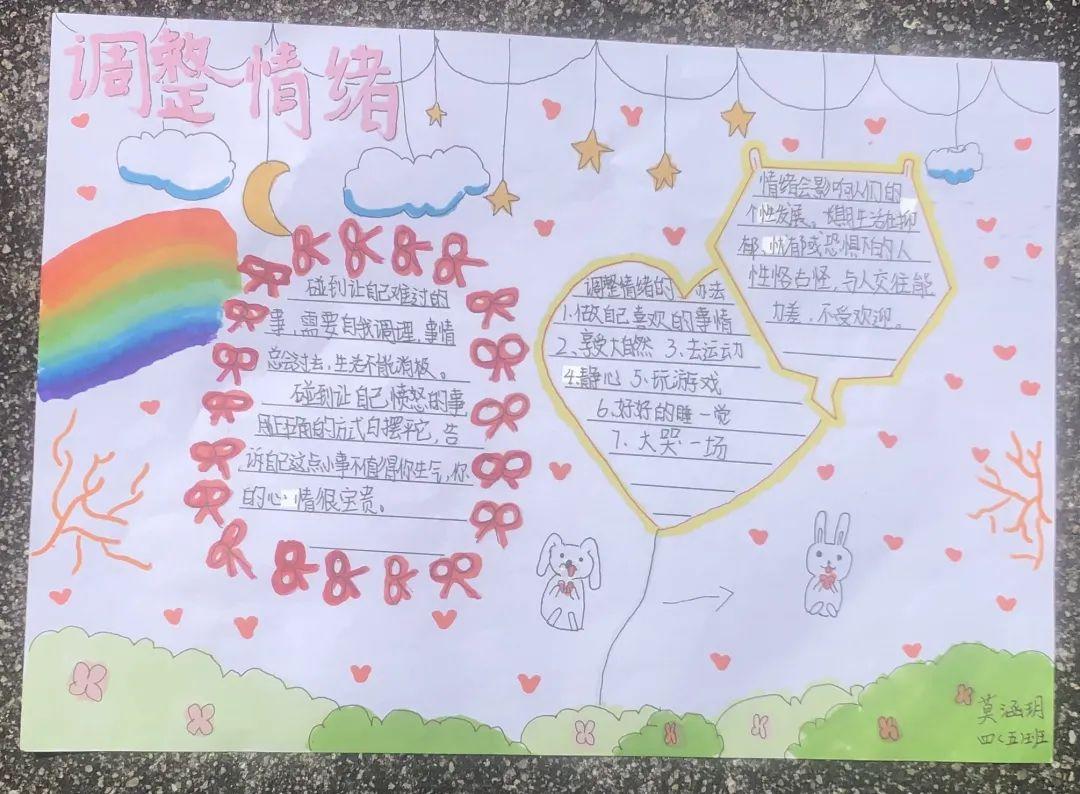 调整情绪
碰到让自己难过的
事，需要自我调理，事情
总会过去，生活不能消极。
碰到让自己愤怒的事
用正确的方式白摆平它，告
诉自己这点小事不值得你生气，你
的心情很宝贵。
调整情绪的办法
1.做自己喜欢的事情
2、享受大自然 3、去运动
4.静心 5、玩游戏
6、好好的睡一觉
7、大哭一场
情绪会影响人们的
个性发展、长期生活在抑
郁、忧郁或恐惧下的人
性格古怪，与人交往能
力差，不受欢迎。
莫涵玥
四〈五〉班